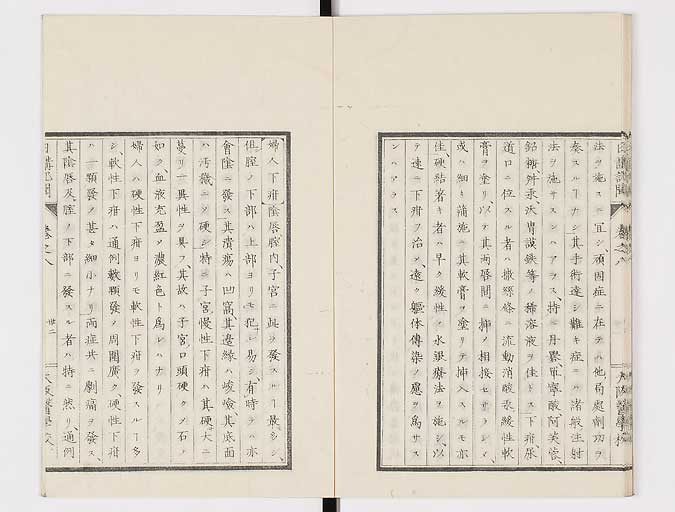 法ヲ施スニ宜シ頑固症ニ在テハ他ノ局處劑功ヲ
奏スルヿナシ其手術達シ難キ症ニハ諸般注射
法ヲ施サスンハアラス、持ニ丹寧酸、阿芙蓉、
鉛糖、舛汞、沃胃謨鉄等ノ稀溶液ヲ佳トス下疳尿
道口ニ位スル者ハ撒絲條ニ流動消酸汞緩性軟
膏ヲ塗リ以テ其両唇間ニ挿ノ相接セサラシメ、
或ハ細キ蒲施ニ其軟膏ヲ塗リテ挿入スルモ亦
佳硬結著キ者ハ早ク緩性ノ水銀療法ヲ施シ以
テ速ニ下疳ヲ治ノ遠ク軀体傳染ノ慮ヲ為サス
ンハアラス
日講記聞 巻之八 大阪醫學校
婦人下疳陰唇腟内、子宮ニ此ヲ發スルヿ最多シ、
但腟ノ下部ハ上部ヨリモ犯レ易シ有時テハ亦
會陰ニ發ス其潰瘍ハ凹窩其邊緣ハ峻嶮其底面
ハ汚穢ニノ硬シ特ニ子宮慢性下疳ハ其硬大ニ
一異性ヲ具フ其故ハ子宮口頭硬クノ石ノ
如ク血液充盈ノ濃紅色ト為レハナリ
婦人ハ硬性下疳ヨリモ軟性下疳ヲ發スルヿ多
シ軟性下疳ハ通例數顆發ノ周圍廣ク硬性下疳
ハ一顆發ノ甚タ細小ナリ両症共ニ劇痛ヲ發ス、
其陰唇及腟ノ下部ニ發スル者ハ特ニ然リ通例
日講記聞 巻之八 卅二 大阪醫學校